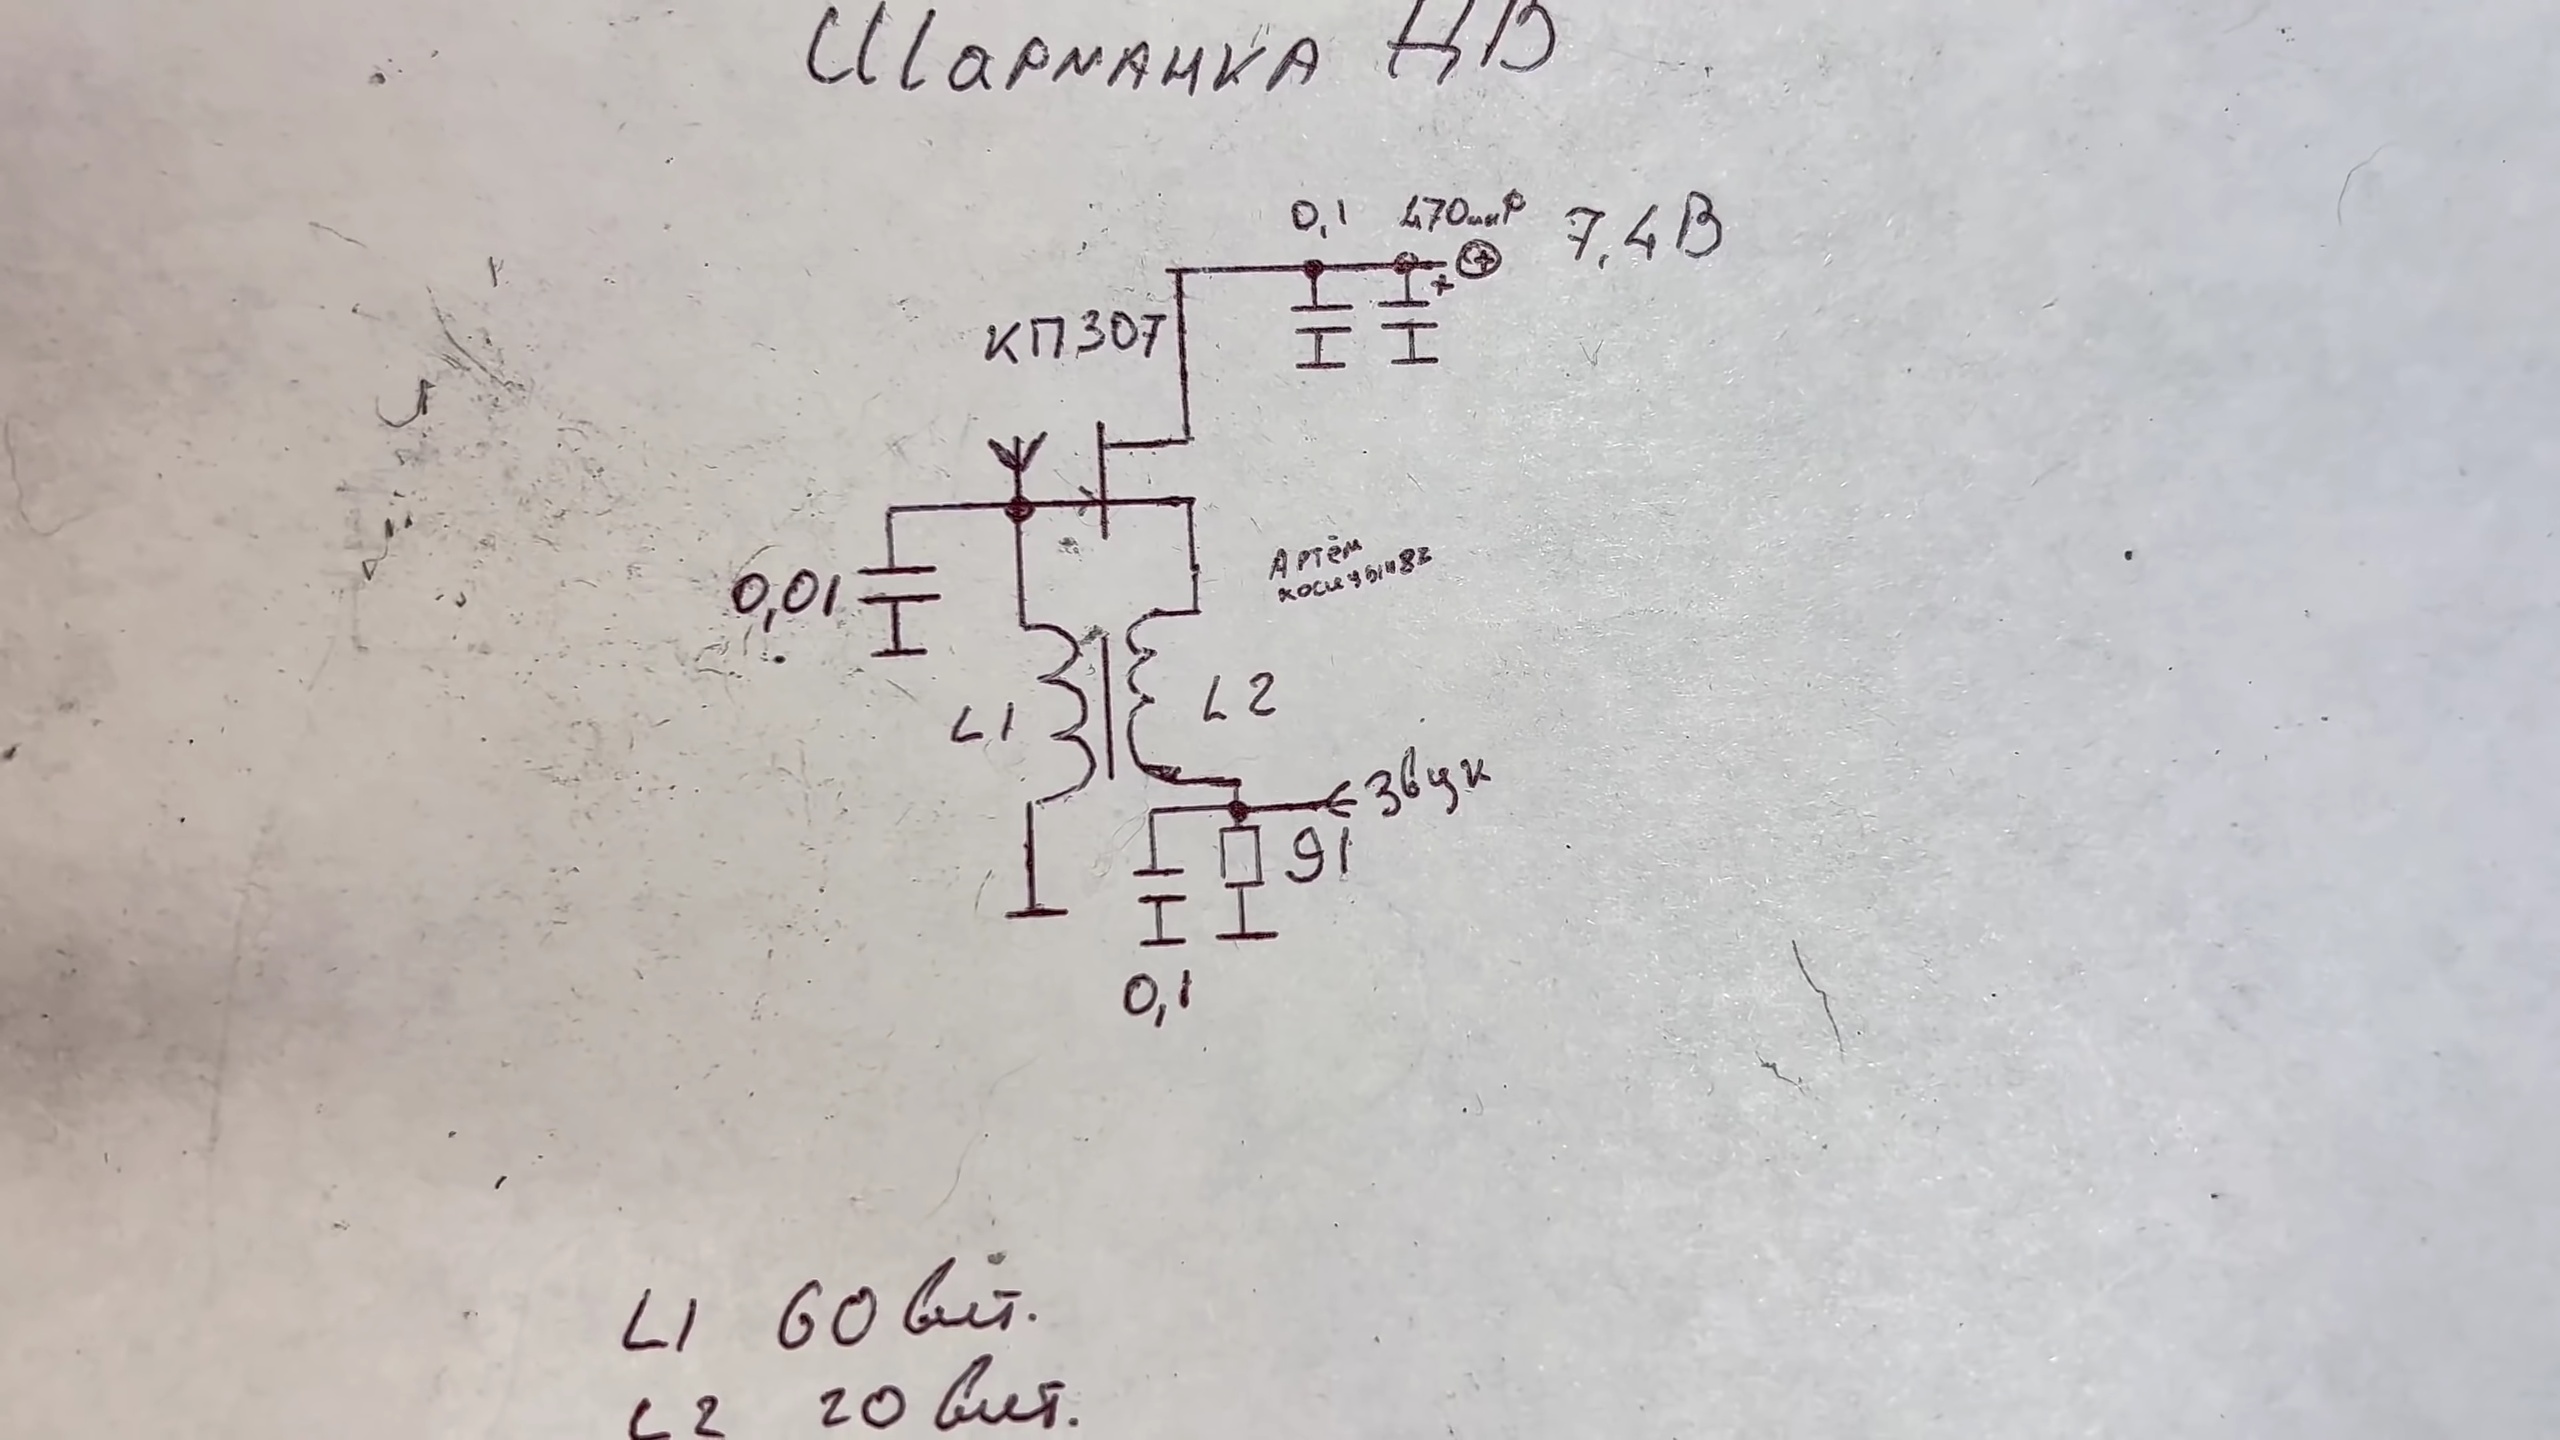 Шарманка ДВ
0,1 470мкF 7,4В
+
КП307
0,01
Артём
L1
L2
Звук
91
0,1
L1 60 вит.
L2 20 вит.